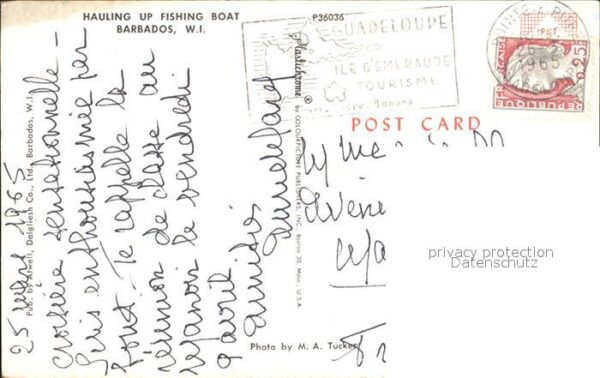 HAULING UP FISHING BOAT
BARBADOS, W.I.
P36036
GUADELOUPE
ILE D'EMERAUDE
TOURISME
Sucre. Banane
POINTE-A-PITRE
1965
REPUBLIQUE
FRANCAISE
0,25
POST CARD
Plastichrome®
by COLOURPICTURE PUBLISHERS, INC., Boston 30, Mass., U.S.A.
Pub. by Atwell, Dalgliesh Co., Ltd., Barbados, W.I.
25 mars 1965
Croisière sensationnelle -
Suis enthousiasmée par
tout - Te rappelle la
réunion de classe au
Lejanon le vendredi
9 avril
Amitiés
Photo by M. A. Tucker
privacy protection
Datenschutz